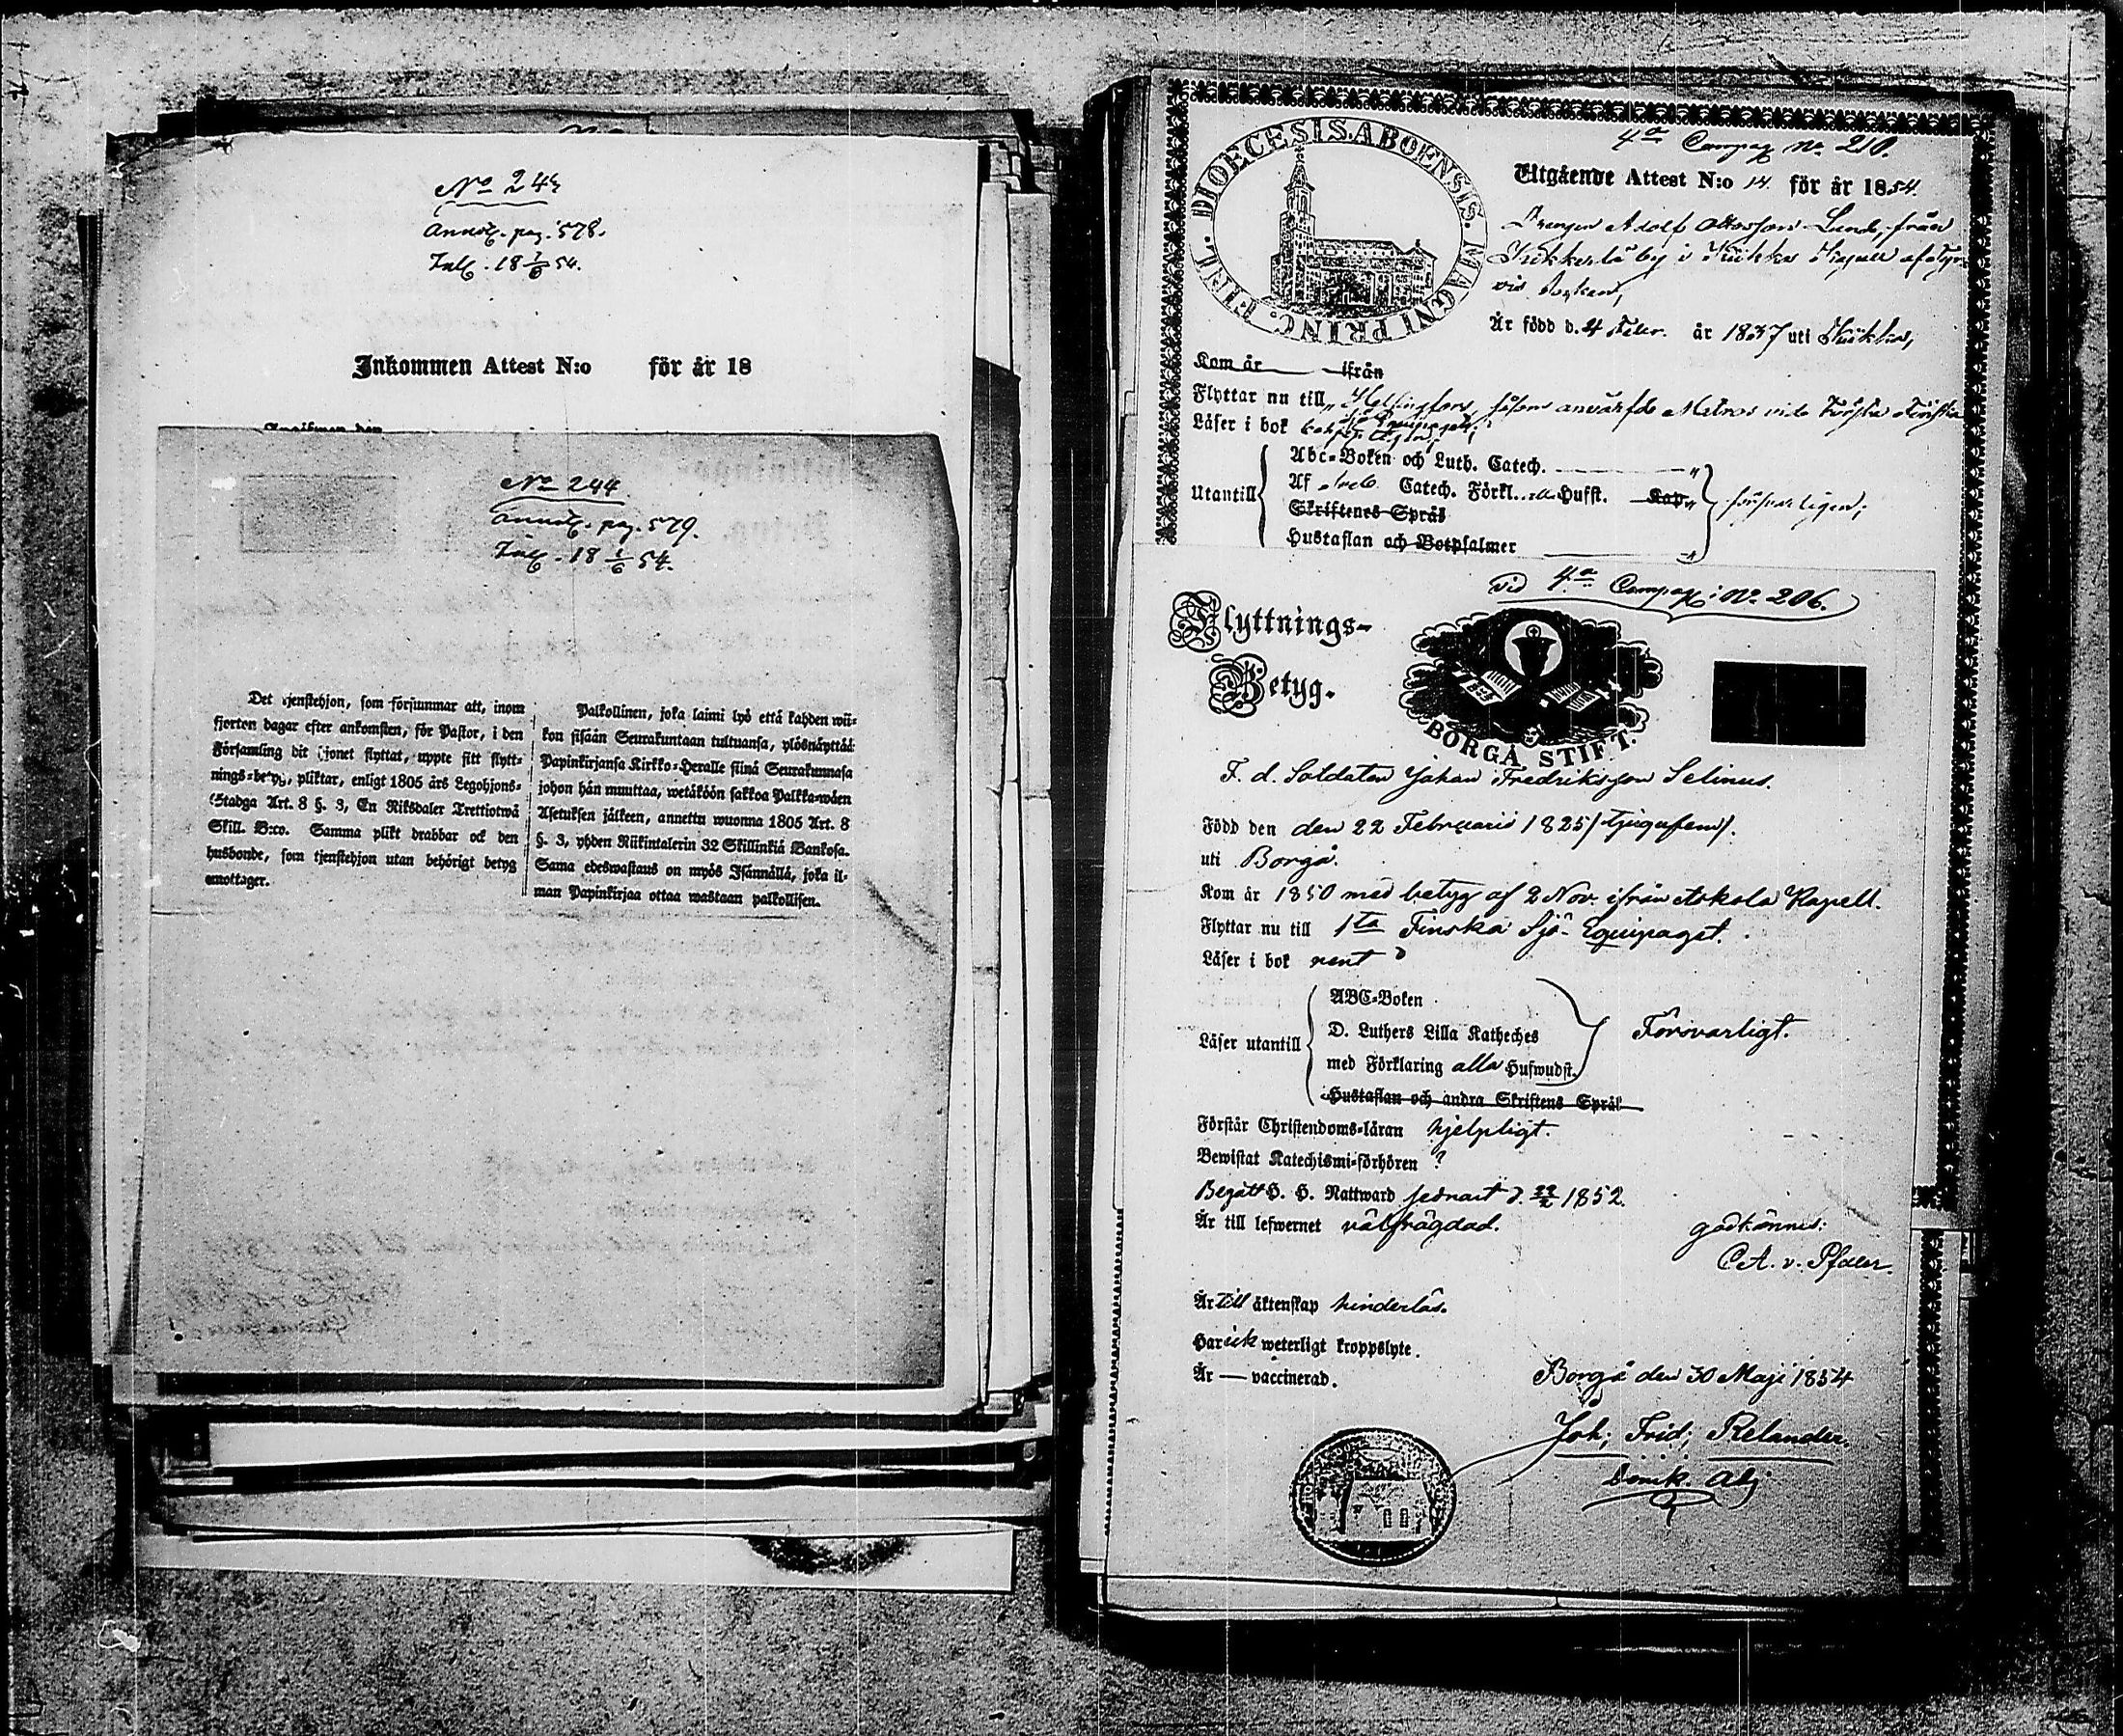 No 243
Annot. pag. 578.
Inl. 18 1/6 54.
Inkommen Attest N:o för år 18
No 244
annot. pag. 579.
Inl. 18 1/6 54.
Det tjenstehjon, som försummar att, inom
fjorton dagar efter ankomsten, för Pastor, i den
Församling dit hjonet flyttat, uppte sitt flytt-
nings-betyg, pliktar, enligt 1805 års Legohjons-
Stadga Art. 8 §. 3, En Riksdaler Trettiotwå
Skill. B:co. Samma plikt drabbar ock den
husbonde, som tjenstehjon utan behörigt betyg
emottager.
Palkollinen, joka laimi lyö että kahden wii-
kon sisään Seurakuntaan tultuansa, ylösnäyttää
Papinkirjansa Kirkko-Heralle siinä Seurakunnasa
johon hän muuttaa, wetäköön sakkoa Palkka-wäen
Asetuksen jälkeen, annettu wuonna 1805 Art. 8
§. 3, yhden Riikintalerin 32 Skillinkiä Bankosa.
Sama edeswastaus on myös Isännällä, joka il-
man Papinkirjaa ottaa wastaan palkollisen.
4de Compag No 210.
DIOECESIS. ABOENSIS. MAGNI PRINC. FINL.
Utgående Attest N:o 14. för år 1854.
Drengen Adolf Ottosson Lund, från
by i
Är född d. 4 Febr. år 1837 uti
Kom år ifrån
Flyttar nu till Helsingfors, såsom Matros vid Första Finska
Läser i bok
Utantill
Abc-Boken och Luth. Catech.
Af Catech. Förkl. alla Hufst. Kap.
Skriftenes Språk
Hustaflan och Botpsalmer
försvarligen;
vid 4de Compag: No 206.
Flyttnings-
Betyg.
BORGÅ STIFT.
F. d. Soldaten Johan Fredriksson Selinus.
Född den den 22 Februarii 1825 (tjugufem).
uti Borgå.
Kom år 1850 med betyg af 2 Nov. ifrån Askola Kapell.
Flyttar nu till 1sta Finska Sjö-Equipaget.
Läser i bok rent
Läser utantill
ABC-Boken
D. Luthers Lilla Katheches
med Förklaring alla Hufwudst.
Hustaflan och andra Skriftens Språk
Försvarligt.
Förstår Christendoms-läran hjelpligt.
Bewistat Katechismi-förhören ?
Begått H. H. Nattward sednast d. 22/2 1852.
Är till lefwernet välfrägdad.
godkännes:
C. A. v. Pfaler.
Är till äktenskap hinderlös.
Har ick weterligt kroppslyte.
Är — vaccinerad.
Borgå den 30 Maji 1854
Joh; Frid; Relander.
Domk. Adj